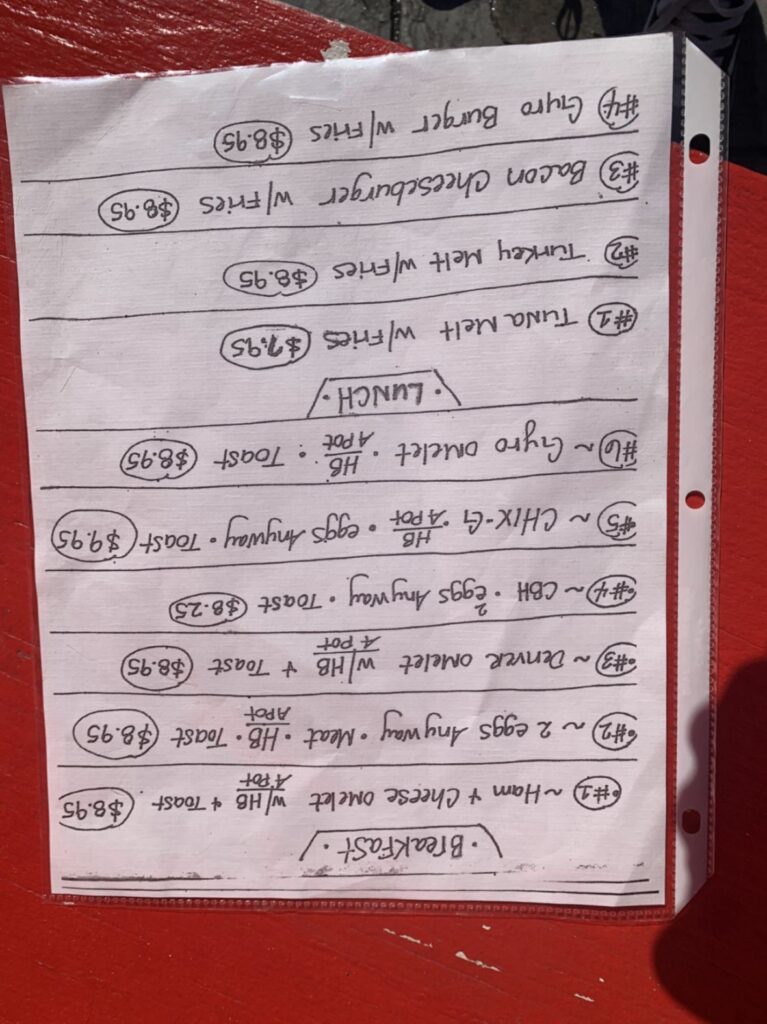 · Breakfast ·
#1 ~ Ham + Cheese omelet w/HB + Toast $8.95
A Pot
#2 ~ 2 eggs Anyway · Meat · HB · Toast $8.95
A Pot
#3 ~ Denver omelet w/HB + Toast $8.95
A Pot
#4 ~ CBH · 2 eggs Anyway · Toast $8.25
#5 ~ CHIX-G · HB · eggs Anyway · Toast $9.95
A Pot
#6 ~ Gyro omelet · HB · Toast $8.95
A Pot
· LUNCH ·
#1 Tuna Melt w/Fries $7.95
#2 Turkey Melt w/Fries $8.95
#3 Bacon Cheeseburger w/Fries $8.95
#4 Gyro Burger w/Fries $8.95